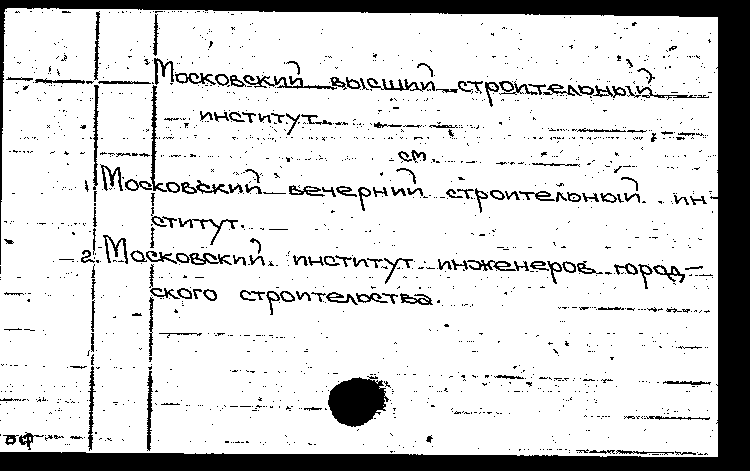 Московский высший строительный
институт.
см.
1. Московский вечерний строительный ин-
ститут.
2. Московский институт инженеров город-
ского строительства.